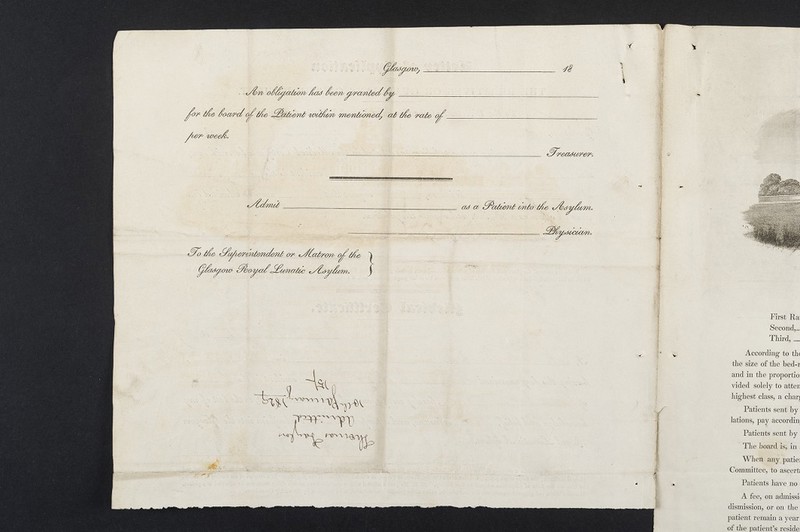 Glasgow, 18
An obligation has been granted by
for the board of the Patient within mentioned, at the rate of
per week.
Treasurer.
Admit as a Patient into the Asylum.
Physician.
To the Superintendent or Matron of the
Glasgow Royal Lunatic Asylum. }
Thomas Taylor
Admitted
10th January 1829
15/
First Ra
Second,
Third,
According to the
the size of the bed-r
and in the proportio
vided solely to atten
highest class, a charg
Patients sent by
lations, pay accordin
Patients sent by
The board is, in
When any patie
Committee, to ascerta
Patients have no
A fee, on admissi
dismission, or on the
patient remain a year
of the patient's reside